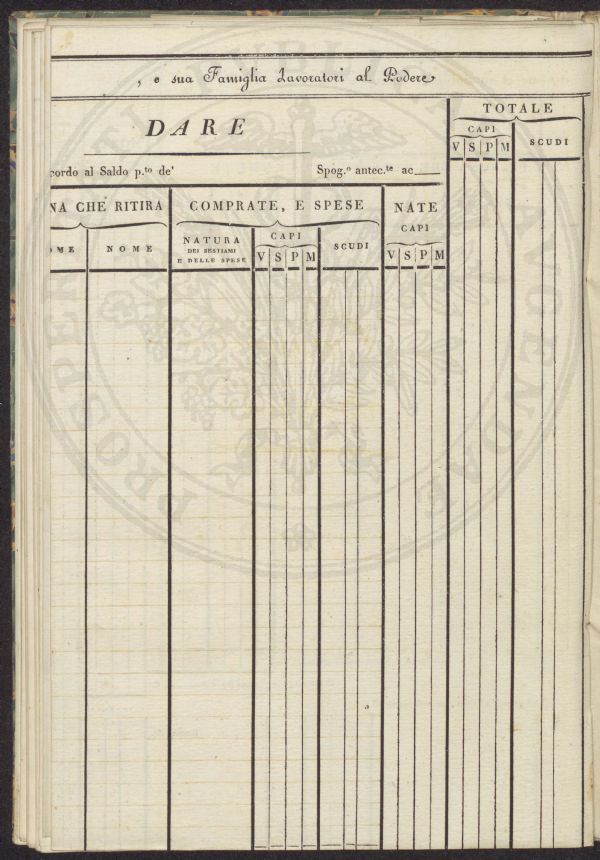 , e sua Famiglia Lavoratori al Podere
DARE
TOTALE
CAPI
V S P M
SCUDI
cordo al Saldo p.to de'
Spog.o antec.te ac
NA CHE RITIRA
COMPRATE, E SPESE
NATE
CAPI
OME
NOME
NATURA
DEI BESTIAMI
E DELLE SPESE
CAPI
V S P M
SCUDI
V S P M
PROSPERITATI PUBLICAE AUGENDAE